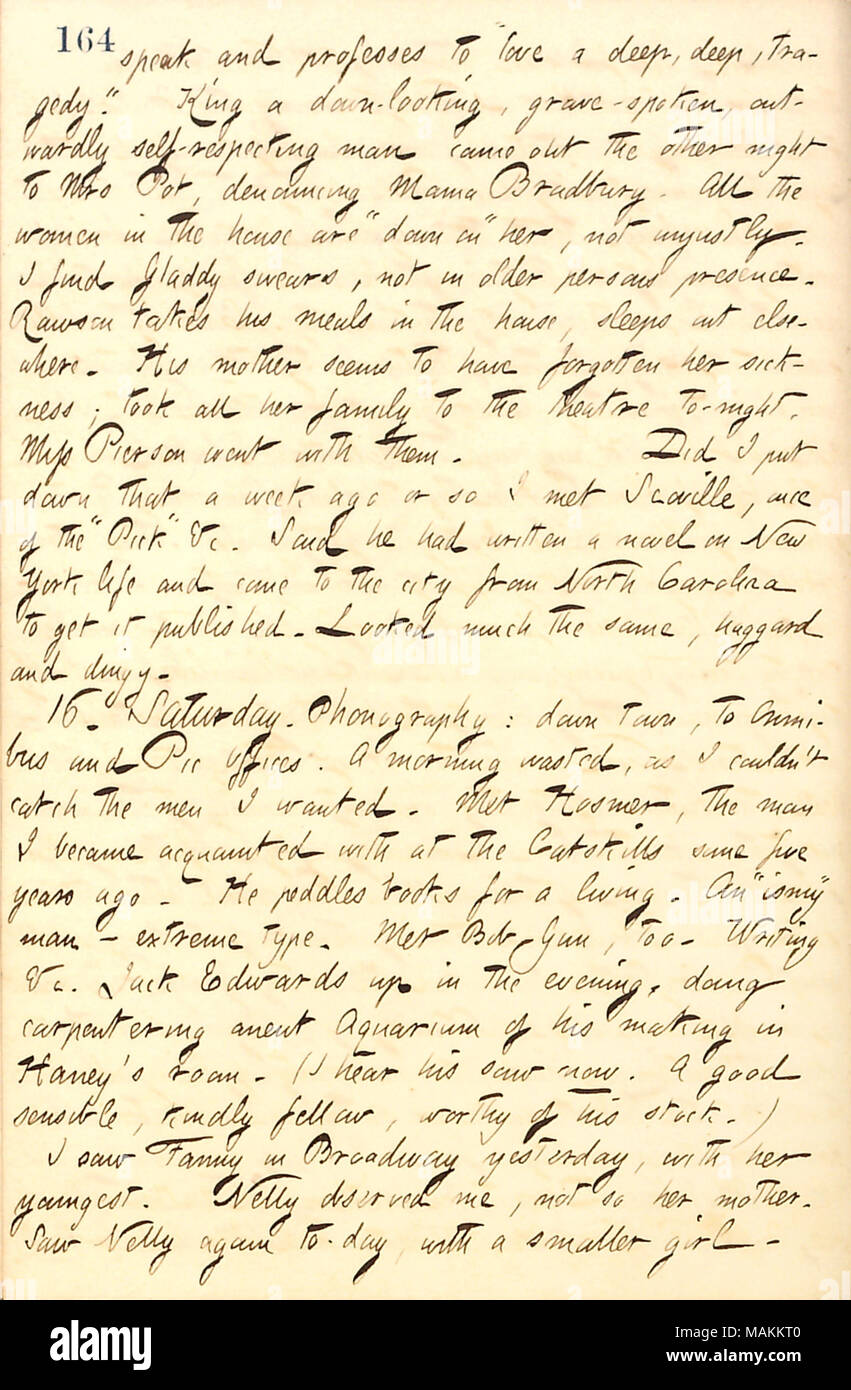 164
speak and professes to "love a deep, deep, tra-
gedy." King a down-looking, grave-spoken, out-
wardly self-respecting man came out the other night
to Mrs Pot, denouncing Mama Bradbury. All the
women in the house are "down on" her, not unjustly.
I find Gladdy swears, not in older persons presence.
Rawson takes his meals in the house, sleeps out else-
where. His mother seems to have forgotten her sick-
ness; took all her family to the theatre to-night.
Miss Pierson went with them. Did I put
down that a week ago or so I met Scoville, once
of the "Pick" &c. Said he had written a novel on New
York life and come to the city from North Carolina
to get it published. Looked much the same, haggard
and dingy.
16. Saturday. Phonography: down town, to Omni-
bus and Pic Offices. A morning wasted, as I couldn't
catch the men I wanted. Met Hosmer, the man
I became acquainted with at the Catskills some five
years ago. He peddles books for a living. An "ismy"
man - extreme type. Met Bob Gun, too. Writing
&c. Jack Edwards up in the evening, doing
carpentering anent Aquarium of his making in
Haney's room. (I hear his saw now. A good
sensible, kindly fellow, worthy of his stock.)
I saw Fanny in Broadway yesterday, with her
youngest. Nelly observed me, not so her mother.
Saw Nelly again to-day, with a smaller girl.
alamy
Image ID: MAKKT0
www.alamy.com